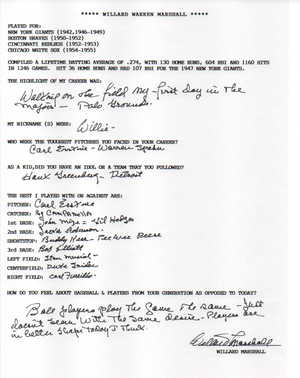 ***** WILLARD WARREN MARSHALL *****
PLAYED FOR:
NEW YORK GIANTS (1942,1946-1949)
BOSTON BRAVES (1950-1952)
CINCINNATI REDLEGS (1952-1953)
CHICAGO WHITE SOX (1954-1955)
COMPILED A LIFETIME BATTING AVERAGE OF .274, WITH 130 HOME RUNS, 604 RBI AND 1160 HITS
IN 1246 GAMES. HIT 36 HOME RUNS AND HAD 107 RBI FOR THE 1947 NEW YORK GIANTS.
THE HIGHLIGHT OF MY CAREER WAS:
Walking on the field my first day in the
Majors - Polo Grounds.
MY NICKNAME (S) WERE: Willie-
WHO WERE THE TOUGHEST PITCHERS YOU FACED IN YOUR CAREER?
Carl Erskine - Warren Spahn
AS A KID, DID YOU HAVE AN IDOL OR A TEAM THAT YOU FOLLOWED?
Hank Greenberg - Detroit
THE BEST I PLAYED WITH OR AGAINST ARE:
PITCHER: Carl Erskine
CATCHER: Roy CAMPANella
1st BASE: John Mize - Gil Hodges
2nd BASE: Jackie Robinson-
SHORTSTOP: Buddy Kerr - Pee Wee Reese
3rd BASE: Bob Elliott
LEFT FIELD: Stan Musial-
CENTERFIELD: Duke Snider
RIGHT FIELD: Carl Furillo
HOW DO YOU FEEL ABOUT BASEBALL & PLAYERS FROM YOUR GENERATION AS OPPOSED TO TODAY?
Ball players play the game the same - Just
doesn't seem with the same desire - Players are
in better shape today I think.
Willard Marshall
WILLARD MARSHALL